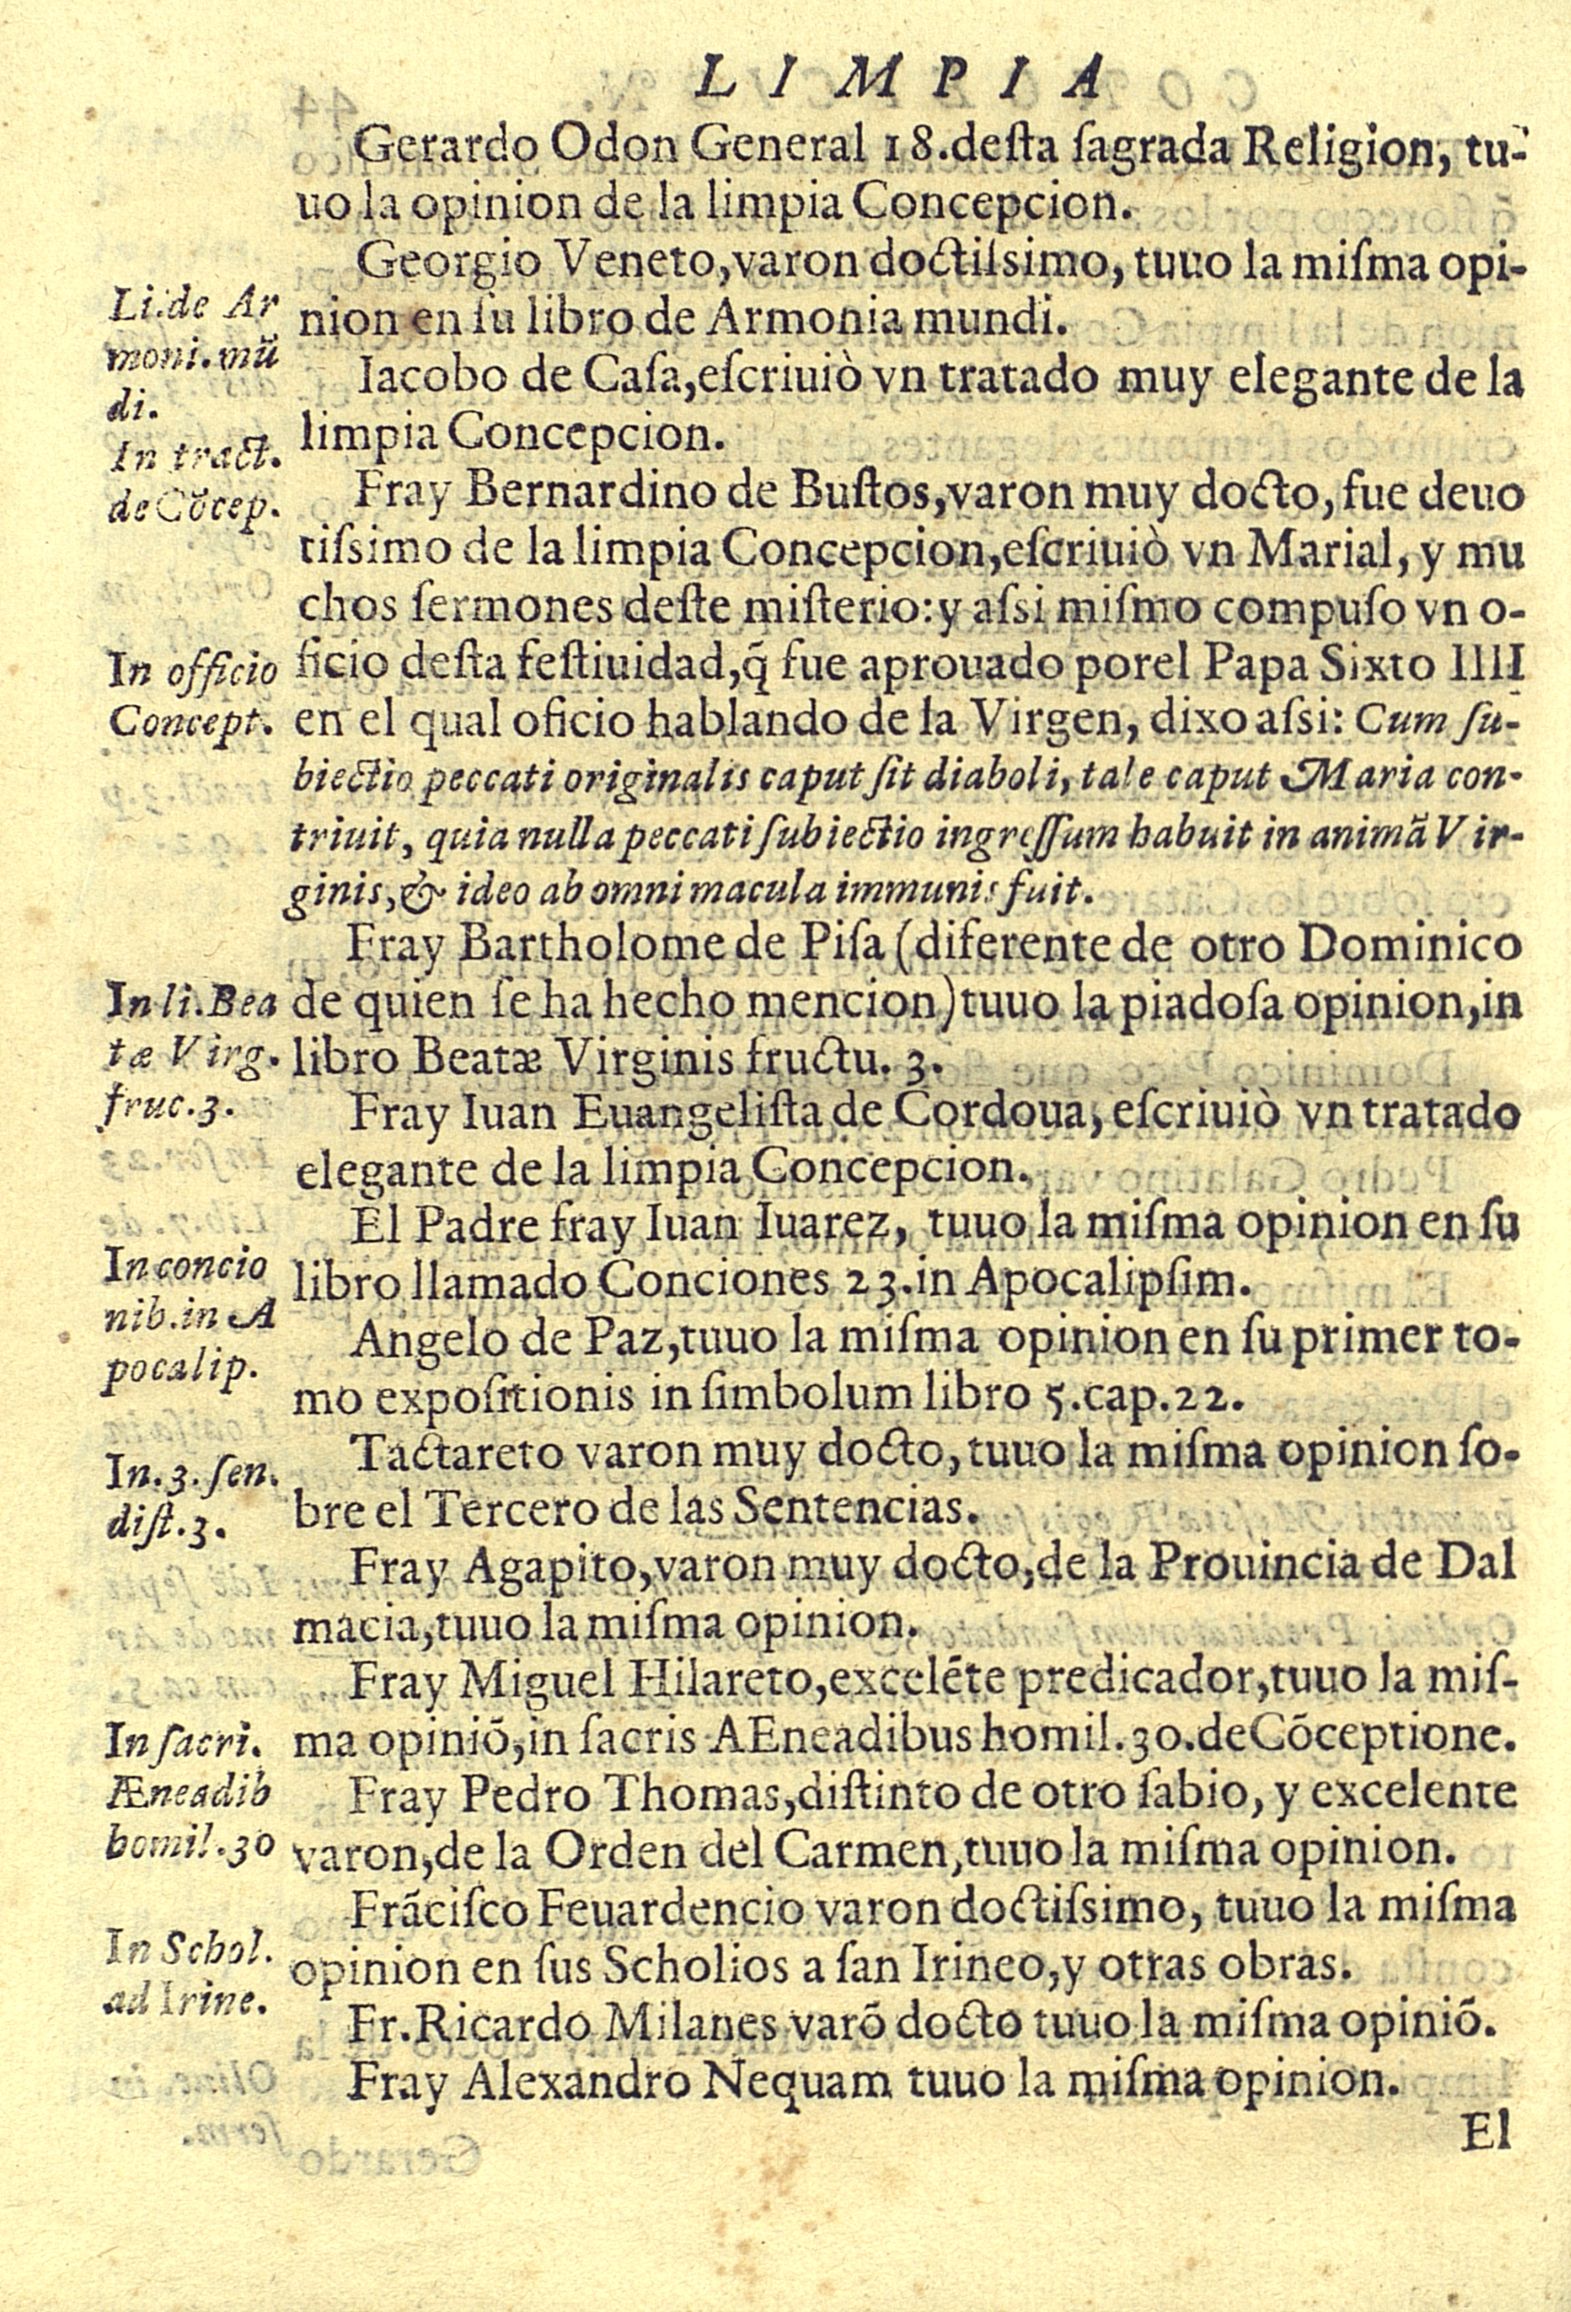 LIMPIA
Gerardo Odon General 18.deſta ſagrada Religion, tu-
uo la opinion de la limpia Concepcion.
Georgio Veneto,varon doctiſsimo, tuuo la miſma opi-
nion en ſu libro de Armonia mundi.
Iacobo de Caſa,eſcriuiò vn tratado muy elegante de la
limpia Concepcion.
Fray Bernardino de Buſtos,varon muy docto, fue deuo
tiſsimo de la limpia Concepcion,eſcriuiò vn Marial, y mu
chos ſermones deſte miſterio:y aſsi miſmo compuſo vn o-
ficio deſta feſtiuidad,q̃ fue aprouado porel Papa Sixto IIII
en el qual oficio hablando de la Virgen, dixo aſsi: Cum ſu-
biectio peccati originalis caput ſit diaboli, tale caput Maria con-
triuit, quia nulla peccati ſubiectio ingreſſum habuit in animã Vir-
ginis,& ideo ab omni macula immunis fuit.
Fray Bartholome de Piſa (diferente de otro Dominico
de quien ſe ha hecho mencion)tuuo la piadoſa opinion,in
libro Beatæ Virginis fructu. 3.
Fray Iuan Euangeliſta de Cordoua, eſcriuiò vn tratado
elegante de la limpia Concepcion.
El Padre fray Iuan Iuarez, tuuo la miſma opinion en ſu
libro llamado Conciones 23.in Apocalipſim.
Angelo de Paz,tuuo la miſma opinion en ſu primer to-
mo expoſitionis in ſimbolum libro 5.cap.22.
Tactareto varon muy docto, tuuo la miſma opinion ſo-
bre el Tercero de las Sentencias.
Fray Agapito,varon muy docto,de la Prouincia de Dal
macia,tuuo la miſma opinion.
Fray Miguel Hilareto,excelẽte predicador,tuuo la miſ-
ma opiniõ,in ſacris AEneadibus homil.30.deCõceptione.
Fray Pedro Thomas,diſtinto de otro ſabio, y excelente
varon,de la Orden del Carmen,tuuo la miſma opinion.
Frãciſco Feuardencio varon doctiſsimo, tuuo la miſma
opinion en ſus Scholios a ſan Irineo,y otras obras.
Fr.Ricardo Milanes varõ docto tuuo la miſma opiniõ.
Fray Alexandro Nequam tuuo la miſma opinion.
El
Li.de Ar
moni.mũ
di.
In tract.
de Cõcep.
In officio
Concept.
In li.Bea
tæ Virg.
fruc.3.
In concio
nib.in A
pocalip.
In.3.ſen.
diſt.3.
In ſacri.
Æneadib
homil.30
In Schol.
ad Irine.